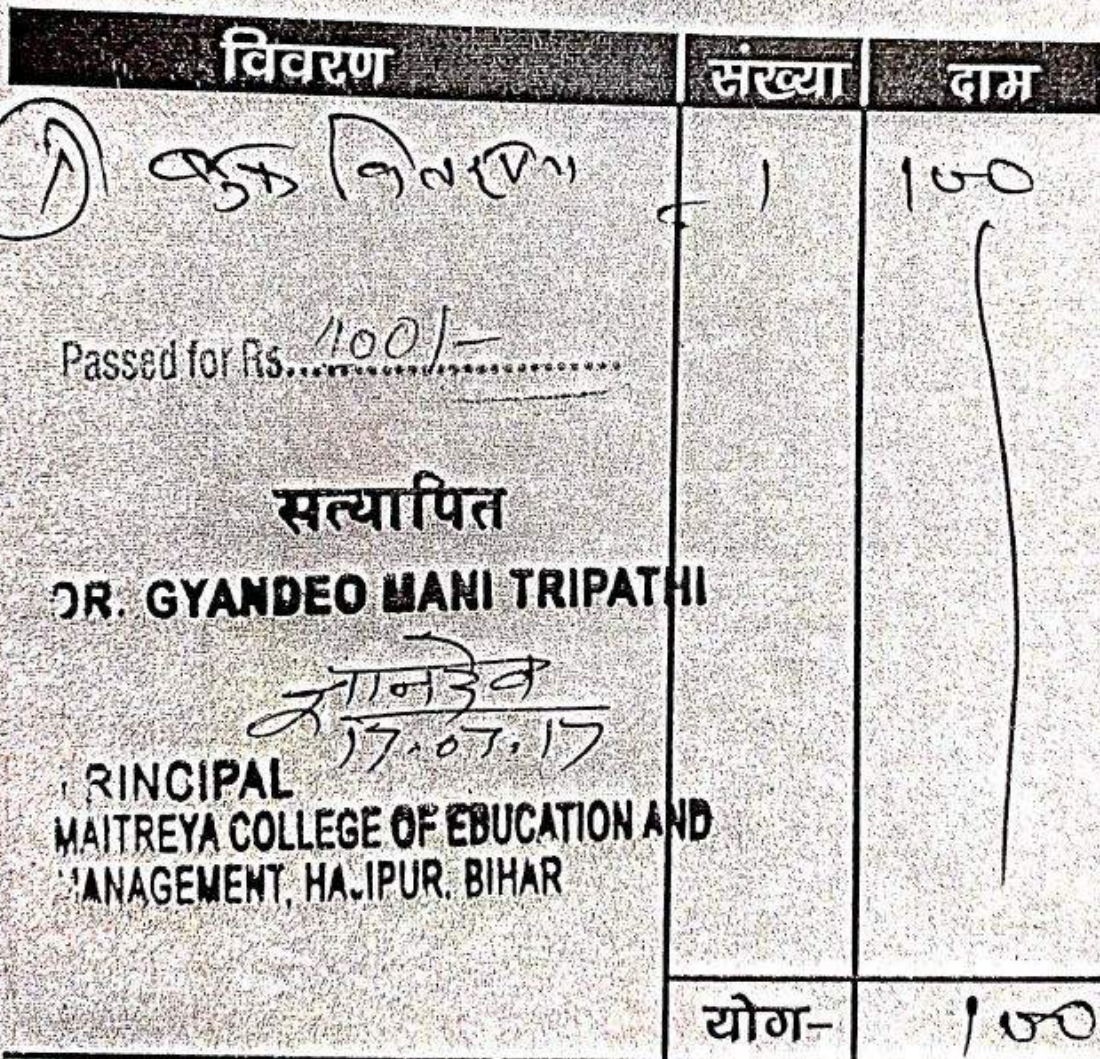 विवरण संख्या दाम
1 1 100
Passed for Rs. 100/-
सत्यापित
DR. GYANDEO MANI TRIPATHI
ज्ञानदेव
17.07.17
PRINCIPAL
MAITREYA COLLEGE OF EDUCATION AND
MANAGEMENT, HAJIPUR. BIHAR
योग- 100